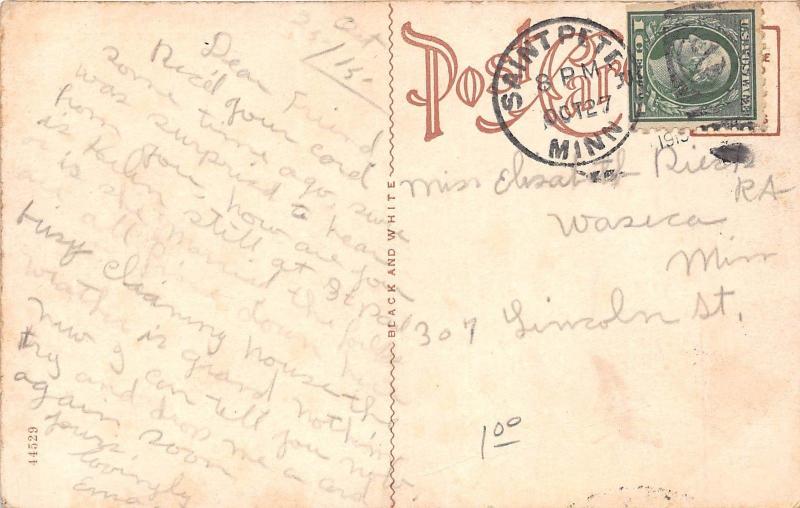 Oct
25/15
Dear Friend
Rec'd your card
some time ago, sure
was surprised to hear
from you, how are you
is Helen still at St Paul
or is she married the folks
are all fine down here
busy cleaning house the
weather is grand nothin
new I can tell you now
try and drop me a card
again soon
yours
lovingly
Emma
44529
BLACK AND WHITE
Post Card
SAINT PETER
8 PM
OCT 27
MINN
1915
U.S. POSTAGE
1 CENT 1
Miss Elizabeth
Waseca
Minn
307 Lincoln St.
1.00